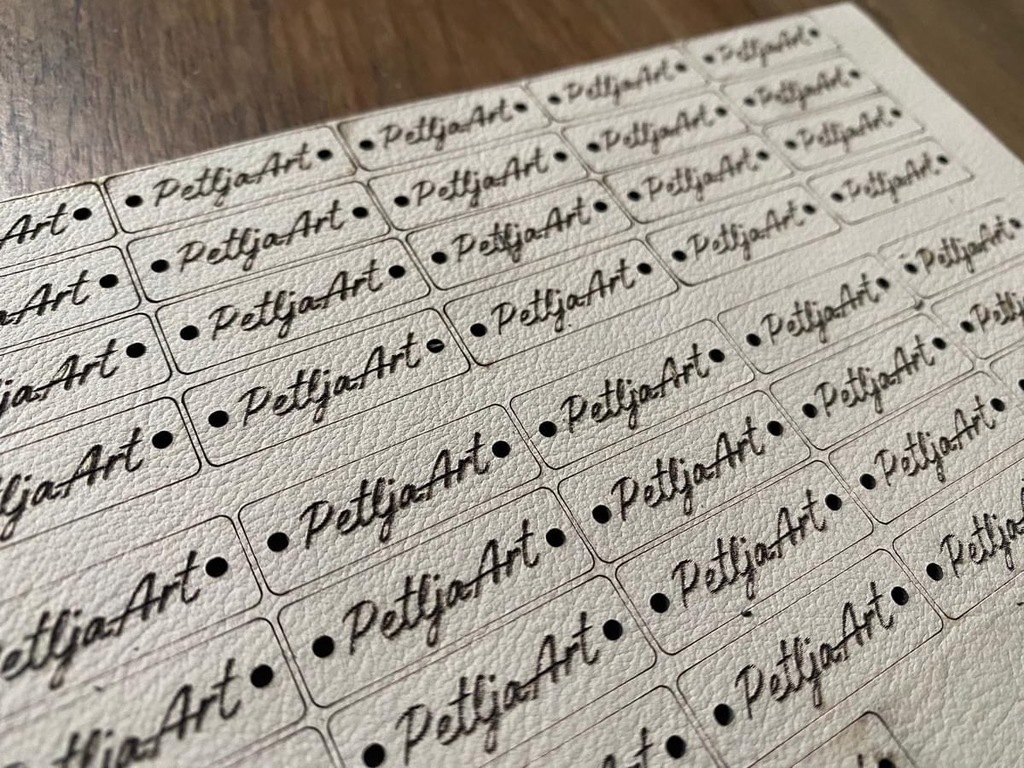 Art PetljaArt PetljaArt PetljaArt PetljaArt
aArt PetljaArt PetljaArt PetljaArt PetljaArt
jaArt PetljaArt PetljaArt PetljaArt PetljaArt
ljaArt PetljaArt PetljaArt PetljaArt PetljaArt
etljaArt PetljaArt PetljaArt PetljaArt PetljaArt
tljaArt PetljaArt PetljaArt PetljaArt Petlj
PetljaArt PetljaArt PetljaArt
rt PetljaArt Petlja